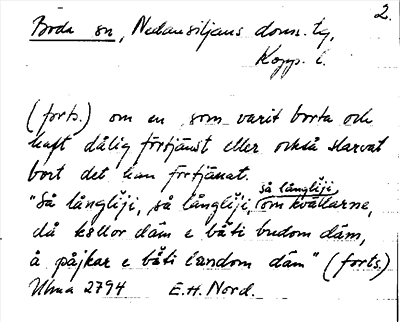 2.
Boda sn, Nedansiljans doms. tg,
Kopp. l.
(forts.) om en som varit borta och
haft dålig förtjänst eller också slarvat
bort det han förtjänat.
så långliji,
"Så långliji, så långliji, om kvällarne,
då kållor dåm e båti budom dåm,
å påjkar e båti landom dåm" (forts.)
Ulma 2794 E.H. Nord.